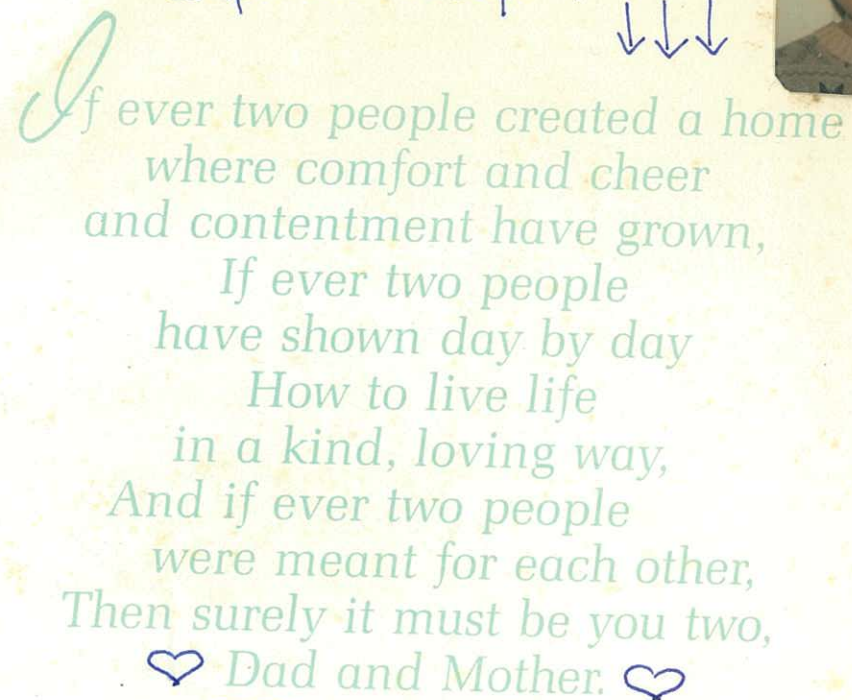 If ever two people created a home
where comfort and cheer
and contentment have grown,
If ever two people
have shown day by day
How to live life
in a kind, loving way,
And if ever two people
were meant for each other,
Then surely it must be you two,
Dad and Mother.